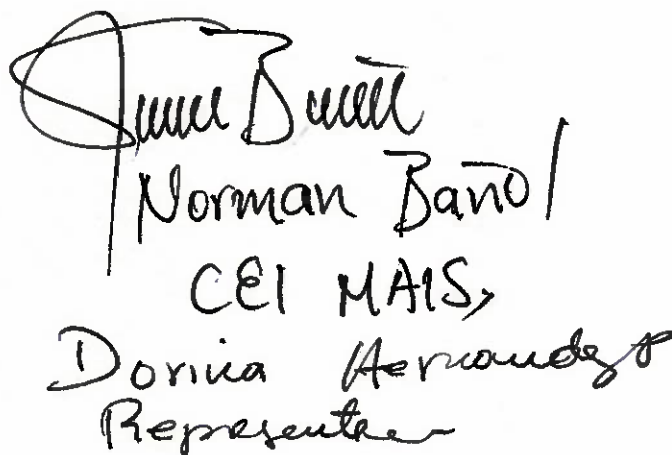 Norman Bañol
CEI MAIS,
Dorina Hernandez P
Representa